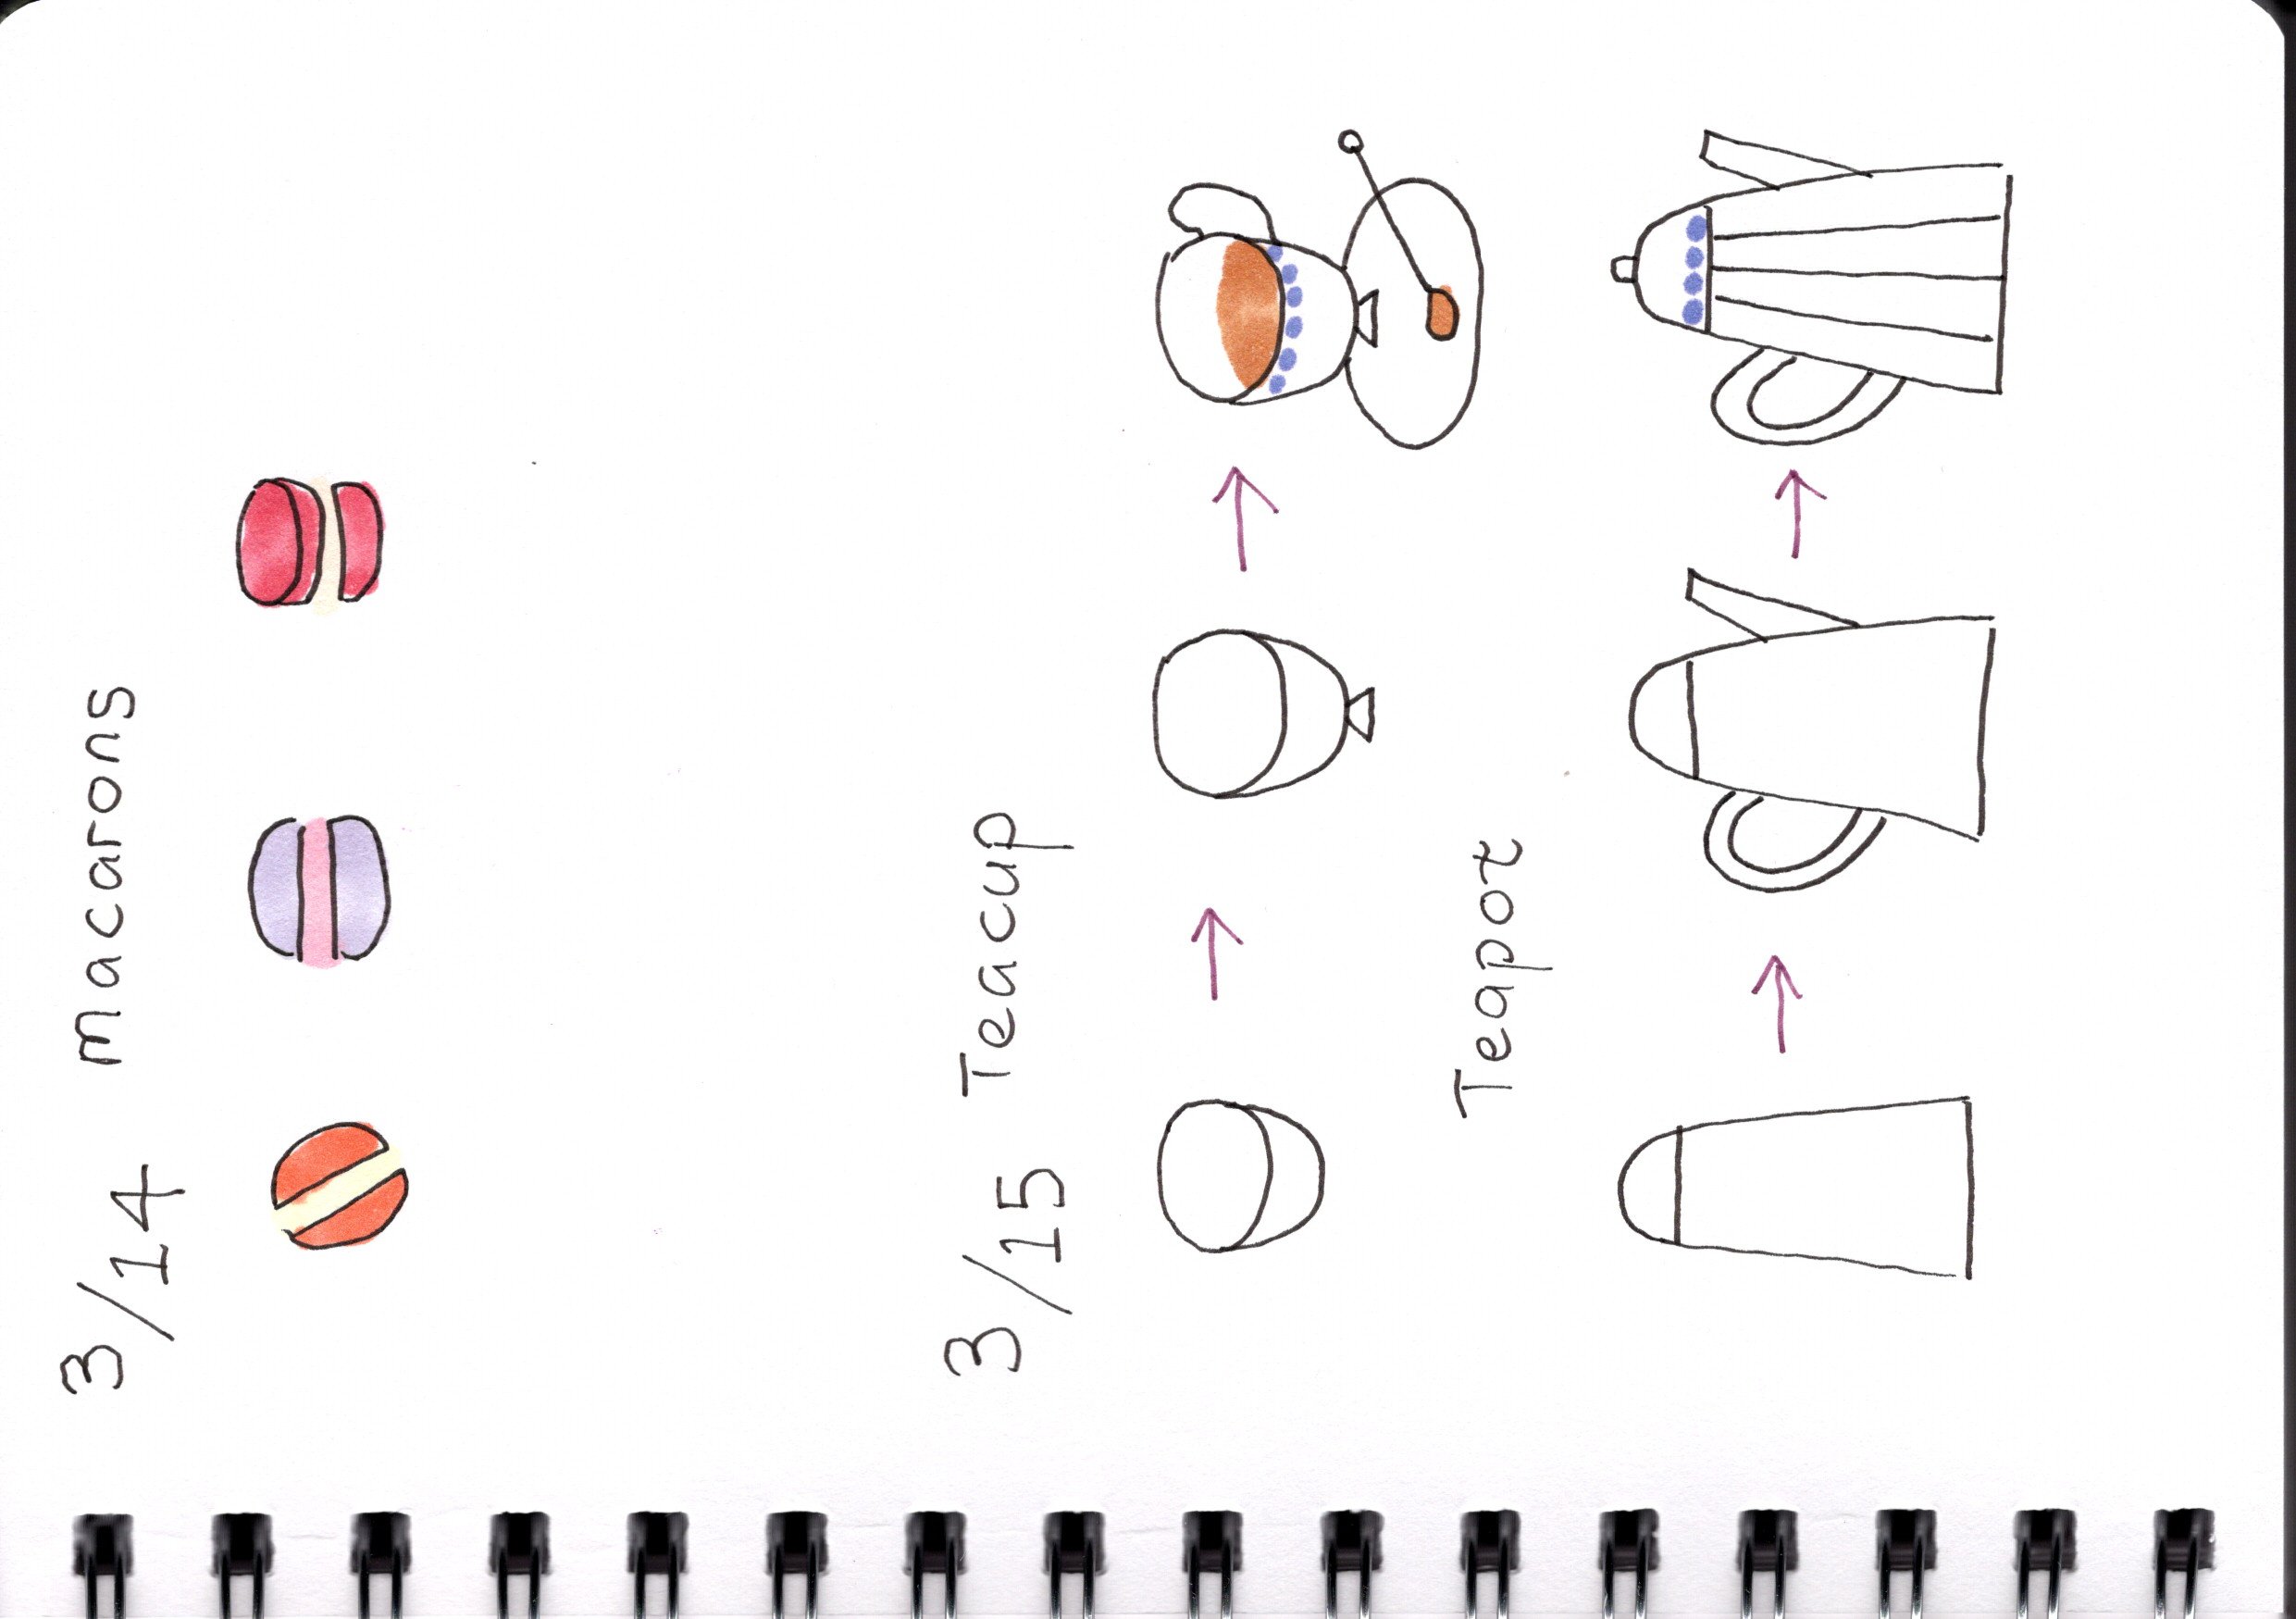 3/14 macarons
3/15 Teacup
Teapot